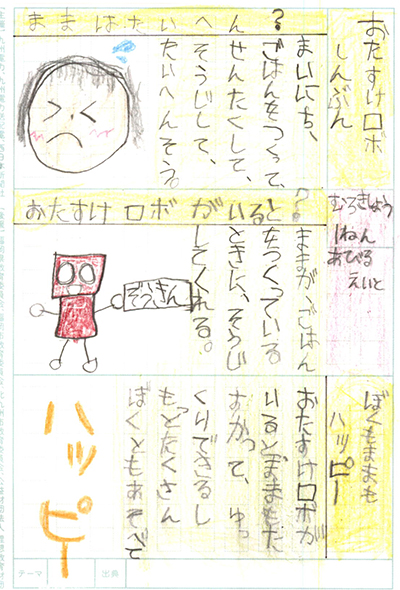 おたすけロボ
しんぶん
むろきょう
1ねん
あびる
えいと
ままはたいへん?
まいにち、
ごはんをつくって、
せんたくして、
そうじして、
たいへんそう。
おたすけロボがいると?
ままが、ごはん
をつくっている
ときに、そうじ
してくれる。
ぞうきん
ぼくもままも
ハッピー
おたすけロボが
いるとままもた
すかって、ゆっ
くりできるし
もっとたくさん
ぼくともあそべて
ハッピー
テーマ
出典